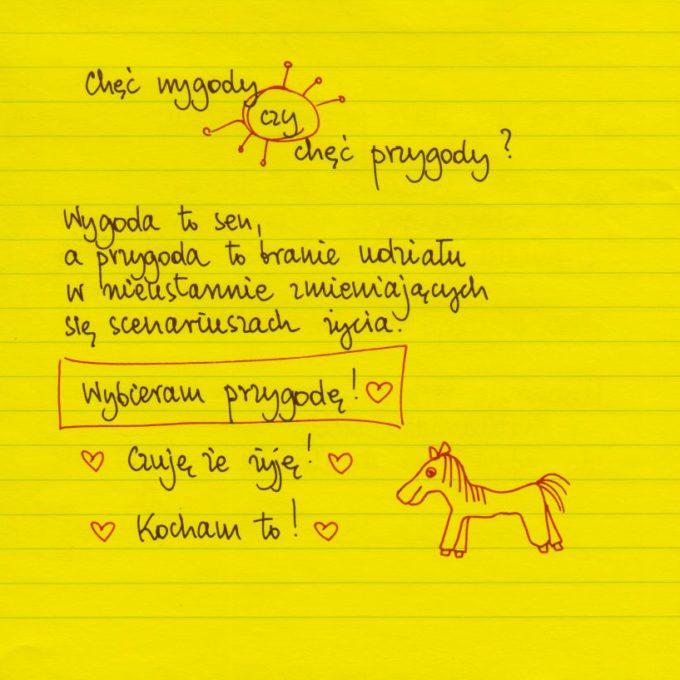 Chęć wygody
czy
chęć przygody?
Wygoda to sen,
a przygoda to branie udziału
w nieustannie zmieniających
się scenariuszach życia.
Wybieram przygodę!
Czuję że żyję!
Kocham to!